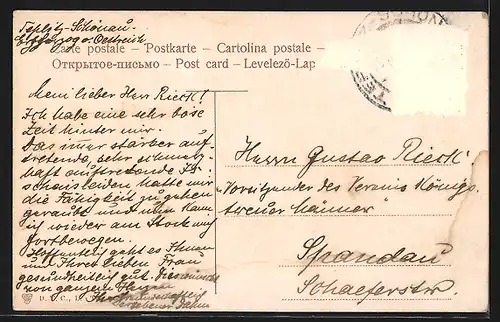 Teplitz-Schönau.
Erzherzog. Oestreich
Carte postale – Postkarte – Cartolina postale –
Открытое-письмо – Post card – Levelező-Lap
Mein lieber Herr Rieck!
Ich habe eine sehr böse
Zeit hinter mir.
Das immer stärker auf-
tretende, sehr schmerz-
haft auftretende Is-
chiasleiden hatte mir
die Fähigkeit zu gehen
geraubt und nun kann
ich wieder am Stock mich
fortbewegen.
Hoffentlich geht es Ihnen
und Ihrer lieben Frau
gesundheitlich gut. Dies wünscht
von ganzem Herzen
Ihr freundschaftlich
ergebener
D. C.
Herrn Gustav Rieck.
"Vorsitzender des Vereins Königs-
treuer Männer"
Spandau
Schaeferstr.